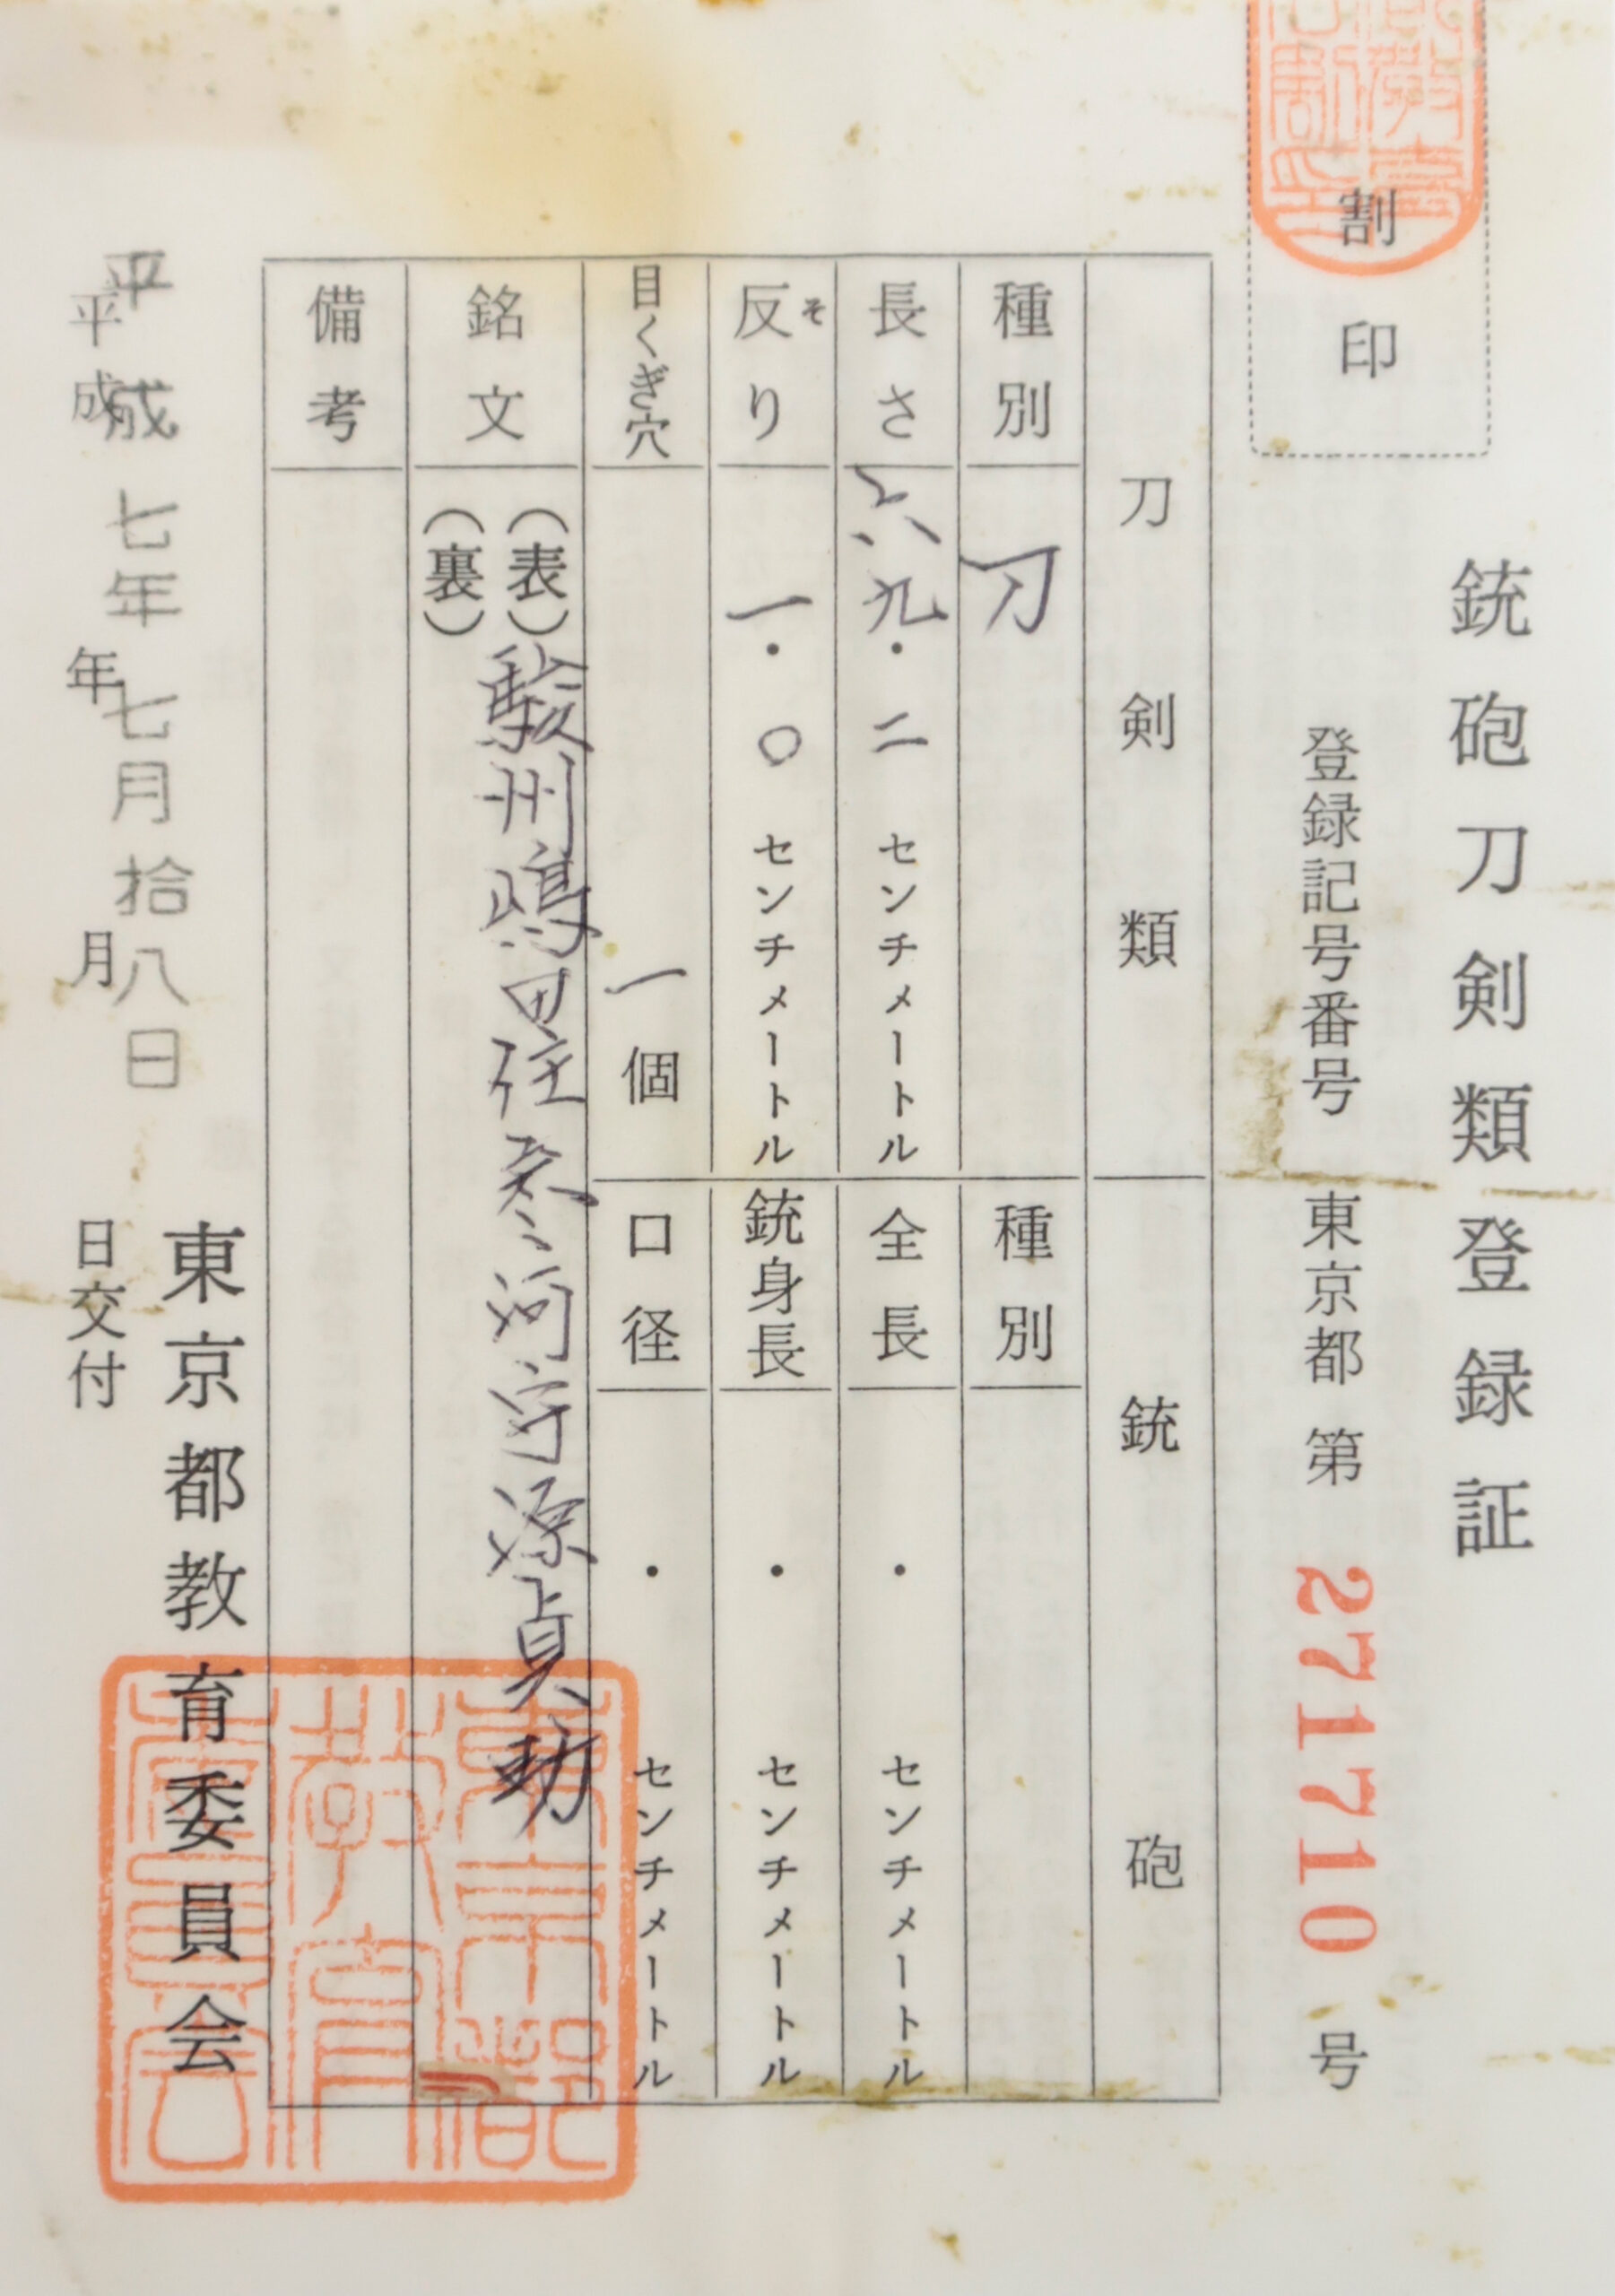 割印
銃砲刀剣類登録証
登録記号番号 東京都 第 271710 号
刀剣類
銃砲
種別 刀
長さ 六九・二 センチメートル
反り そ 一・〇 センチメートル
目くぎ穴 一個
銘文 (表) 駿州嶋田住参河守源貞助
(裏)
備考
種別
全長 ・ センチメートル
銃身長 ・ センチメートル
口径 ・ センチメートル
平成七年七月拾八日
平成 年 月 日交付
東京都教育委員会
東京都教育委員会